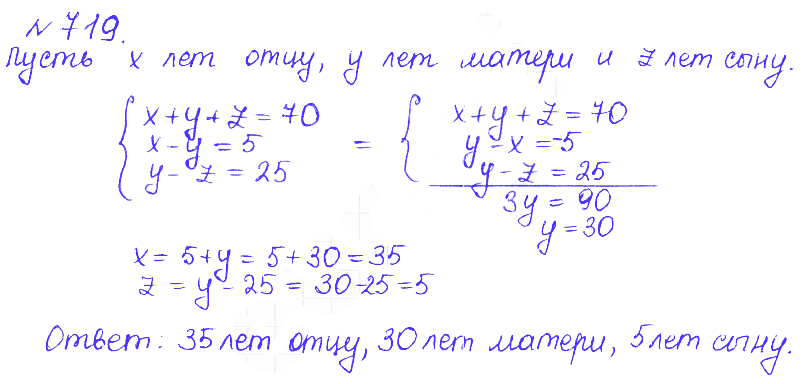 № 719.
Пусть x лет отцу, y лет матери и z лет сыну.
{ x+y+z=70 = { x+y+z=70
x-y=5 y-x=-5
y-z=25 y-z=25
3y=90
y=30
x=5+y=5+30=35
z=y-25=30-25=5
Ответ: 35 лет отцу, 30 лет матери, 5 лет сыну.